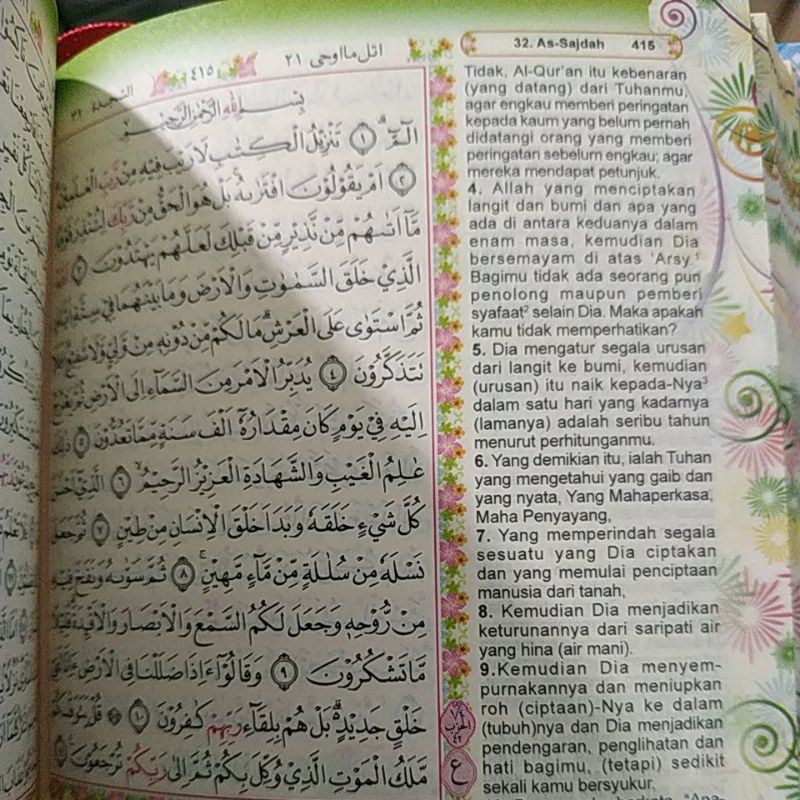 ٤١٥
اتل مااوحى ٢١
بِسْمِ اللّٰهِ الرَّحْمٰنِ الرَّحِيْمِ
الۤمّۤ ۚ ١ تَنْزِيْلُ الْكِتٰبِ لَا رَيْبَ فِيْهِ مِنْ رَّبِّ الْعٰلَمِيْنَ
٢ اَمْ يَقُوْلُوْنَ افْتَرٰىهُ ۚ بَلْ هُوَ الْحَقُّ مِنْ رَّبِّكَ لِتُنْذِرَ قَوْمًا
مَّآ اَتٰىهُمْ مِّنْ نَّذِيْرٍ مِّنْ قَبْلِكَ لَعَلَّهُمْ يَهْتَدُوْنَ ٣
الَّذِيْ خَلَقَ السَّمٰوٰتِ وَالْاَرْضَ وَمَا بَيْنَهُمَا فِيْ سِتَّةِ
ثُمَّ اسْتَوٰى عَلَى الْعَرْشِ ۗ مَا لَكُمْ مِّنْ دُوْنِهٖ مِنْ وَّلِيٍّ وَّلَا شَفِيْعٍ
تَتَذَكَّرُوْنَ ٤ يُدَبِّرُ الْاَمْرَ مِنَ السَّمَاۤءِ اِلَى الْاَرْضِ ثُمَّ يَعْرُجُ
اِلَيْهِ فِيْ يَوْمٍ كَانَ مِقْدَارُهٗٓ اَلْفَ سَنَةٍ مِّمَّا تَعُدُّوْنَ ٥ ذٰلِكَ
عٰلِمُ الْغَيْبِ وَالشَّهَادَةِ الْعَزِيْزُ الرَّحِيْمُ ۙ ٦ الَّذِيْٓ اَحْسَنَ
كُلَّ شَيْءٍ خَلَقَهٗ وَبَدَاَ خَلْقَ الْاِنْسَانِ مِنْ طِيْنٍ ٧ ثُمَّ جَعَلَ
نَسْلَهٗ مِنْ سُلٰلَةٍ مِّنْ مَّاۤءٍ مَّهِيْنٍ ۚ ٨ ثُمَّ سَوّٰىهُ وَنَفَخَ فِيْهِ
مِنْ رُّوْحِهٖ وَجَعَلَ لَكُمُ السَّمْعَ وَالْاَبْصَارَ وَالْاَفْـِٕدَةَ ۗ قَلِيْلًا
مَّا تَشْكُرُوْنَ ٩ وَقَالُوْٓا ءَاِذَا ضَلَلْنَا فِى الْاَرْضِ
خَلْقٍ جَدِيْدٍ ۗ بَلْ هُمْ بِلِقَاۤءِ رَبِّهِمْ كٰفِرُوْنَ ١٠ قُلْ يَتَوَفّٰىكُمْ
مَّلَكُ الْمَوْتِ الَّذِيْ وُكِّلَ بِكُمْ ثُمَّ اِلٰى رَبِّكُمْ تُرْجَعُوْنَ ١١
ع
32. As-Sajdah 415
Tidak, Al-Qur'an itu kebenaran
(yang datang) dari Tuhanmu,
agar engkau memberi peringatan
kepada kaum yang belum pernah
didatangi orang yang memberi
peringatan sebelum engkau; agar
mereka mendapat petunjuk.
4. Allah yang menciptakan
langit dan bumi dan apa yang
ada di antara keduanya dalam
enam masa, kemudian Dia
bersemayam di atas 'Arsy.¹
Bagimu tidak ada seorang pun
penolong maupun pemberi
syafaat² selain Dia. Maka apakah
kamu tidak memperhatikan?
5. Dia mengatur segala urusan
dari langit ke bumi, kemudian
(urusan) itu naik kepada-Nya³
dalam satu hari yang kadarnya
(lamanya) adalah seribu tahun
menurut perhitunganmu.
6. Yang demikian itu, ialah Tuhan
yang mengetahui yang gaib dan
yang nyata, Yang Mahaperkasa,
Maha Penyayang,
7. Yang memperindah segala
sesuatu yang Dia ciptakan
dan yang memulai penciptaan
manusia dari tanah,
8. Kemudian Dia menjadikan
keturunannya dari saripati air
yang hina (air mani).
9.Kemudian Dia menyem-
purnakannya dan meniupkan
roh (ciptaan)-Nya ke dalam
(tubuh)nya dan Dia menjadikan
pendengaran, penglihatan dan
hati bagimu, (tetapi) sedikit
sekali kamu bersyukur.